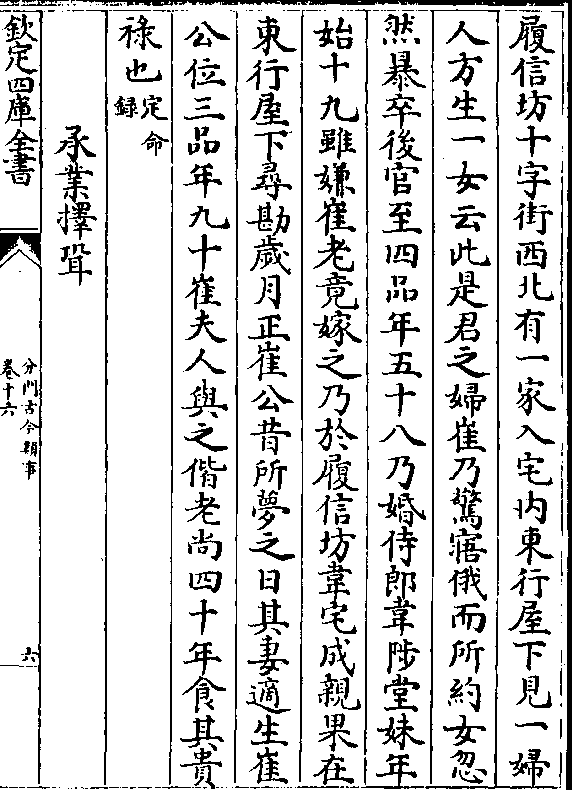 履信坊十字街西北有一家入宅内東行屋下見一婦
人方生一女云此是君之婦崔乃驚寤俄而所約女忽
然暴卒後官至四品年五十八乃婚侍郎韋陟堂妹年
始十九雖嫌崔老竟嫁之乃於履信坊韋宅成親果在
東行屋下尋勘歲月正崔公昔所夢之日其妻適生崔
公位三品年九十崔夫人與之偕老尚四十年食其貴
祿也定命録
承業擇耼
欽定四庫全書
分門古今類事
卷十六
六